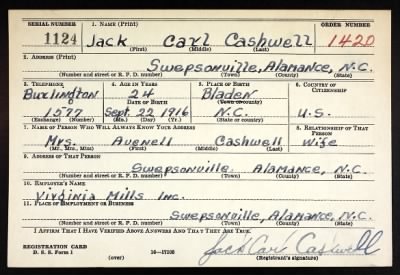 SERIAL NUMBER 1. NAME (Print) ORDER NUMBER
1124 Jack Carl Cashwell 1420
(First) (Middle) (Last)
2. ADDRESS (Print)
Swepsonville, Alamance, N.C.
(Number and street or R. F. D. number) (Town) (County) (State)
3. TELEPHONE 4. AGE IN YEARS 5. PLACE OF BIRTH 6. COUNTRY OF CITIZENSHIP
Burlington 24 Bladen
DATE OF BIRTH (Town or county)
1577 Sept. 22, 1916 N.C. U.S.
(Exchange) (Number) (Mo.) (Day) (Yr.) (State or country)
7. NAME OF PERSON WHO WILL ALWAYS KNOW YOUR ADDRESS 8. RELATIONSHIP OF THAT PERSON
Mrs. Avenell Cashwell Wife
(Mr., Mrs., Miss) (First) (Middle) (Last)
9. ADDRESS OF THAT PERSON
Swepsonville, Alamance, N.C.
(Number and street or R. F. D. number) (Town) (County) (State)
10. EMPLOYER'S NAME
Virginia Mills Inc.
11. PLACE OF EMPLOYMENT OR BUSINESS
Swepsonville, Alamance, N.C.
(Number and street or R. F. D. number) (Town) (County) (State)
I AFFIRM THAT I HAVE VERIFIED ABOVE ANSWERS AND THAT THEY ARE TRUE.
REGISTRATION CARD
D. S. S. Form 1 (over) 16—17105 Jack Carl Cashwell
(Registrant's signature)